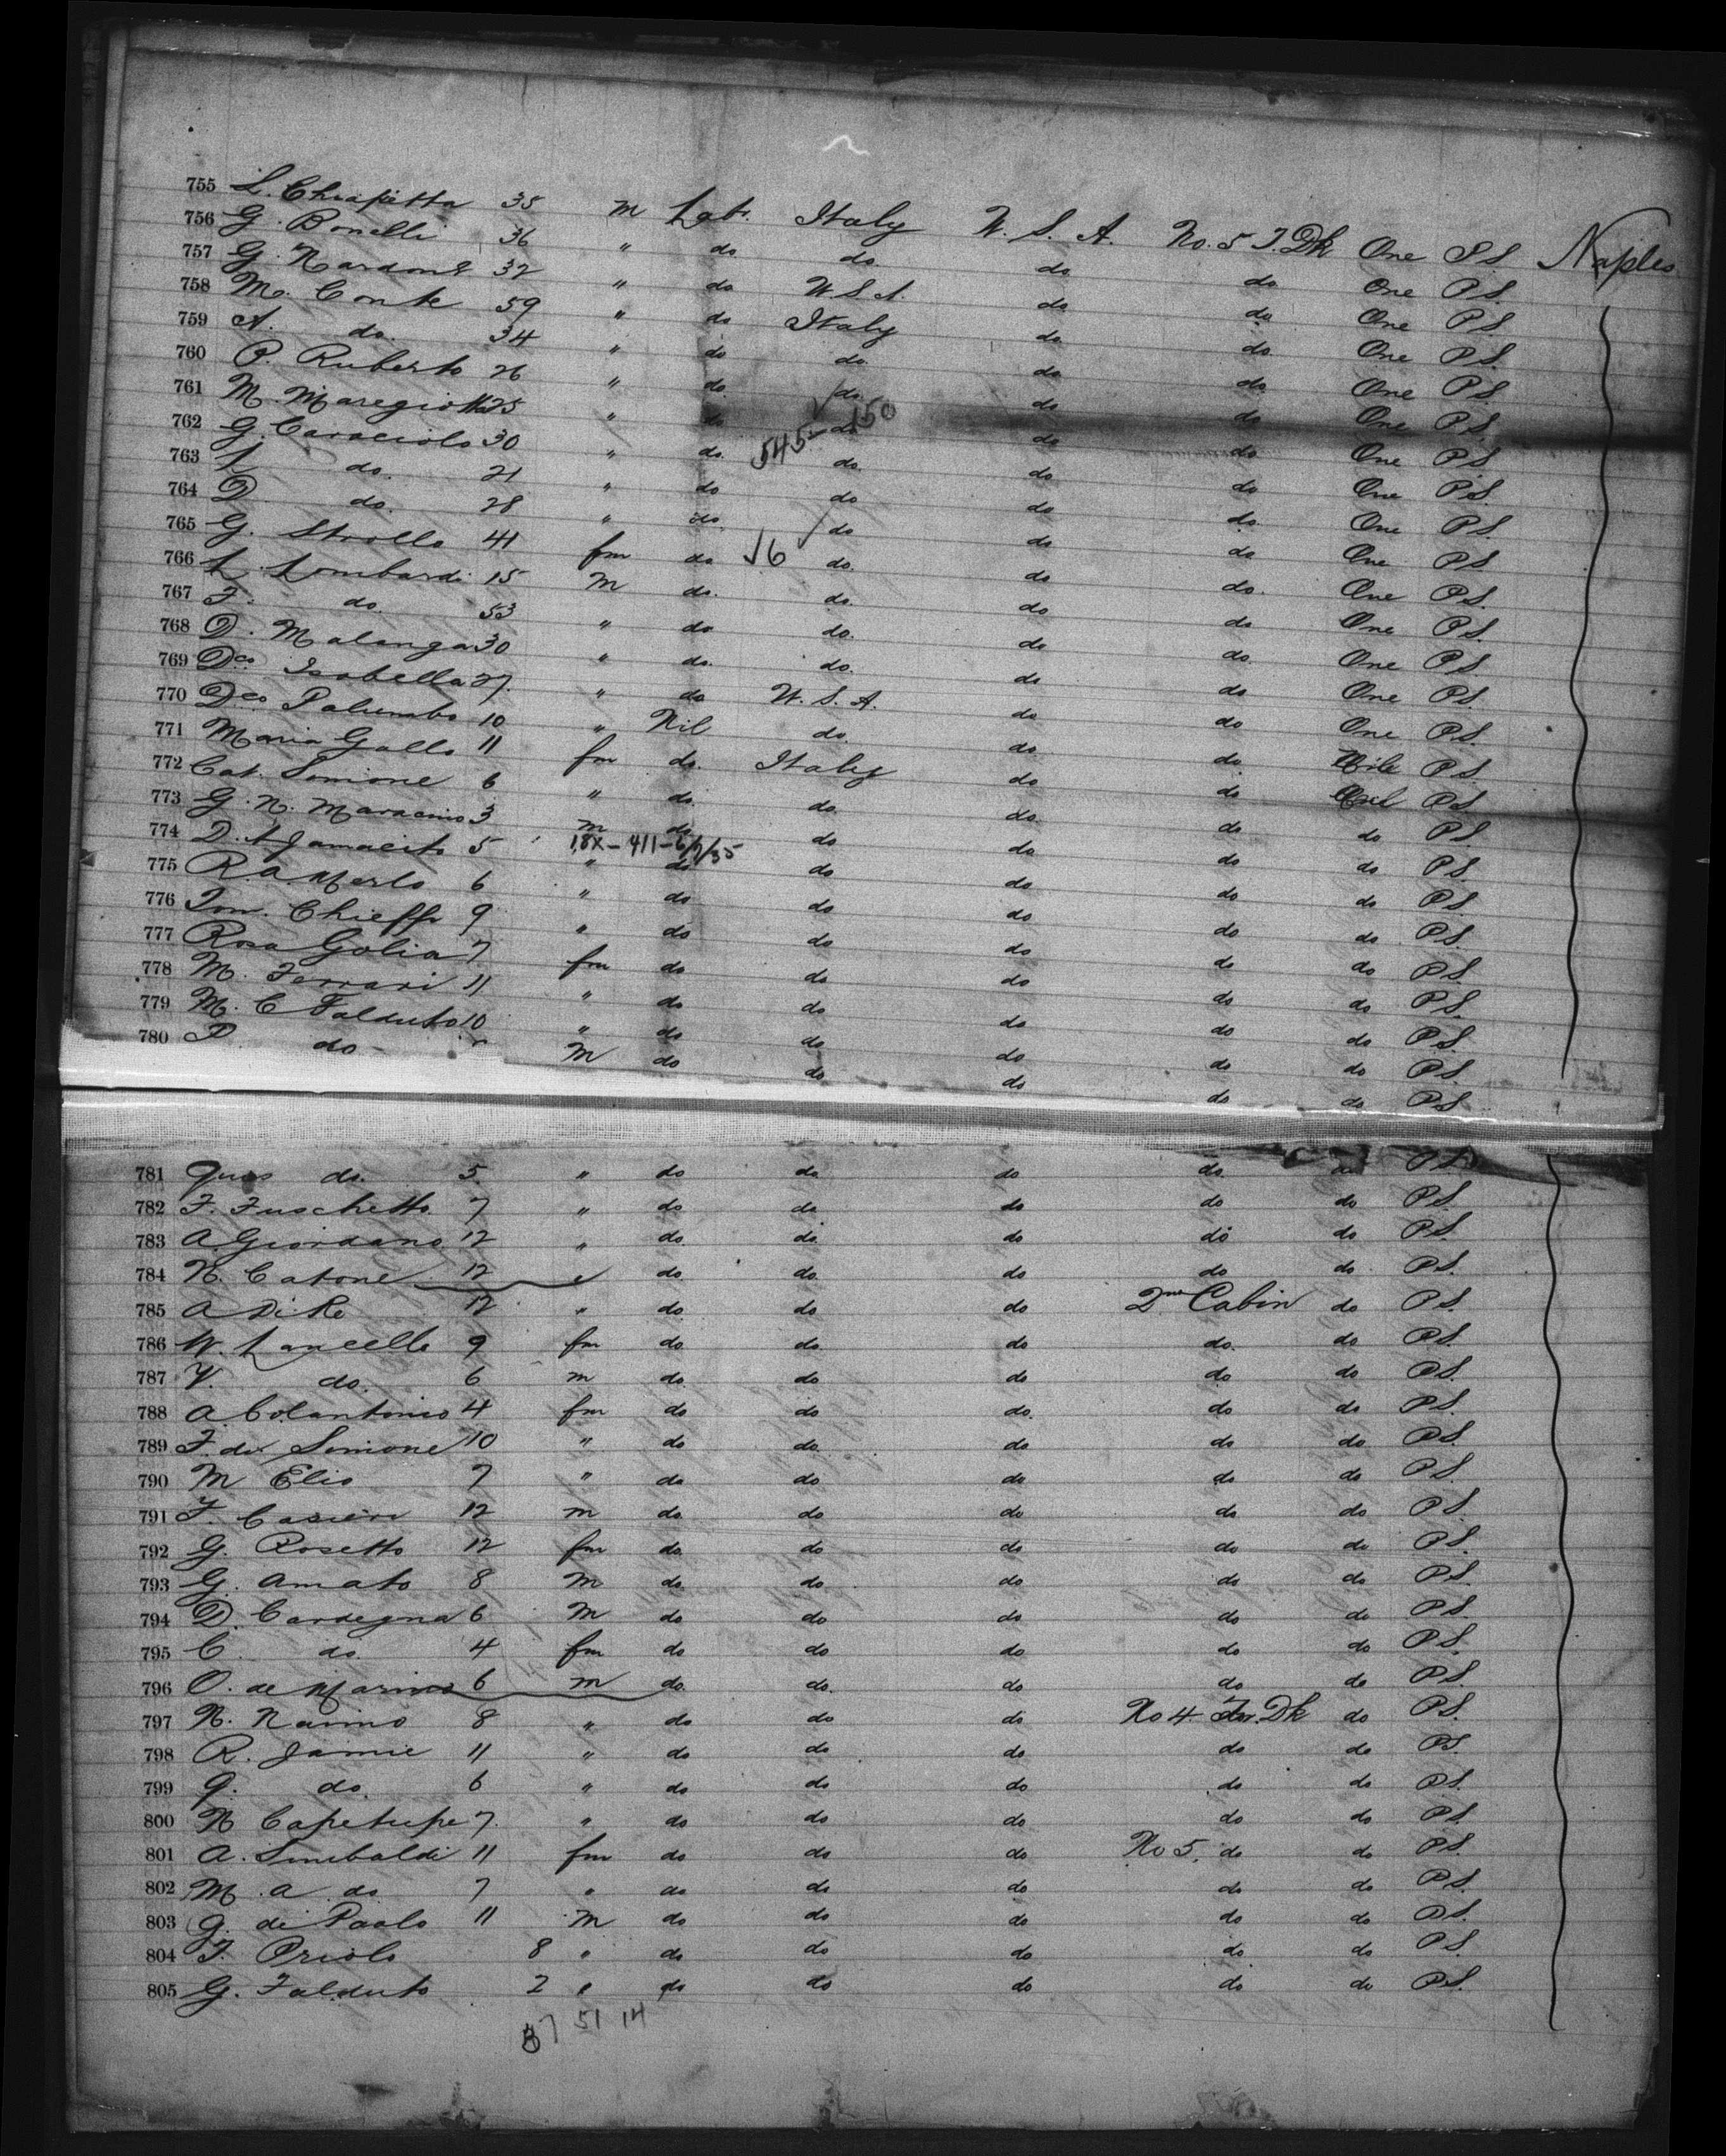 755 L. Chiapetta 35 m Lab. Italy U. S. A. No. 5 T. Dk One P.S. Naples
756 G. Bonelli 36 " do do. do do One P.S.
757 G. Nardone 32 " do U.S.A. do do One P.S.
758 M. Conte 59 " do Italy do do. One P.S.
759 A. do. 34 " do do. do do. One P.S.
760 P. Ruberto 26 " do. do. do do One P.S.
761 M. Maregiotta 25 " do do do do One P.S.
545- 150
762 G. Caraciolo 30 " do. do. do do One P.S.
763 L do. 21 " do do do do One P.S.
764 D do. 28 " do. do do do. One P.S.
765 G. Strollo 41 fm do do. do do One P.S.
√6
766 L. Lombardi 15 m do. do. do do. One P.S.
767 F. do. 53 " do do. do do One P.S.
768 D. Malanga 30 " do. do. do do. One P.S.
769 Dco Isabella 27. " do U. S. A. do do One P.S.
770 Dco Palumbo 10 " Nil do. do do Nil P.S.
771 Maria Gallo 11 fm do. Italy do do P.S.
772 Cat. Simione 6 " do. do. do. do do P.S.
773 G. N. Maracino 3 m do do do do do P.S.
18X- 411- 6/7/35
774 D. A. Jamacito 5 " do do do do do P.S.
775 R. A. Merlo 6 " do do do do do P.S.
776 Chieffo 9 " do do do do do P.S.
777 Rosa Golia 7 fm do do do do do P.S.
778 M. Ferrari 11 " do do do do do P.S.
779 M. C Falduto 10 " do do do do do P.S.
780 P do m do do do do do P.S.
781 do. 5. " do do do do. do P.S.
782 F. Fuschetto 7 " do do do do do P.S.
783 A. Giordano 12 " do. do. do do do P.S.
784 N. Catone 12 do. do. do do do P.S.
785 A Di Re 12 " do. do do 2nd Cabin do P.S.
786 W. Lancello 9 fm do. do. do do. do P.S.
787 V. do. 6 m do. do do do do P.S.
788 A. Colantonio 4 fm do do do. do do P.S.
789 F. di Simione 10 " do do. do do do P.S.
790 M Elio 7 " do do do do do P.S.
791 F. Casieri 12 m do. do do do do P.S.
792 G. Rosetto 12 fm do. do do do do P.S.
793 G. Amato 8 m do. do do. do do P.S.
794 D. Cardegna 6 m do do do do do P.S.
795 C do. 4 fm do do do do do P.S.
796 O. de Marino 6 m do. do. do do do P.S.
797 N. Naimo 8 " do do do No 4 Tw. Dk do P.S.
798 R. Jamie 11 " do do do do do P.S.
799 G. do. 6 " do do do do do P.S.
800 N Capetupe 7. " do do do. do do P.S.
801 A. Sinibaldi 11 fm do do do No 5. do do P.S.
802 M. A do. 7 " do do do do do P.S.
803 G. di Paolo 11 m do do do do do P.S.
804 F. Priolo 8 " do do do do do P.S.
805 G. Falduto 2 " do do do do do P.S.
37 51 14